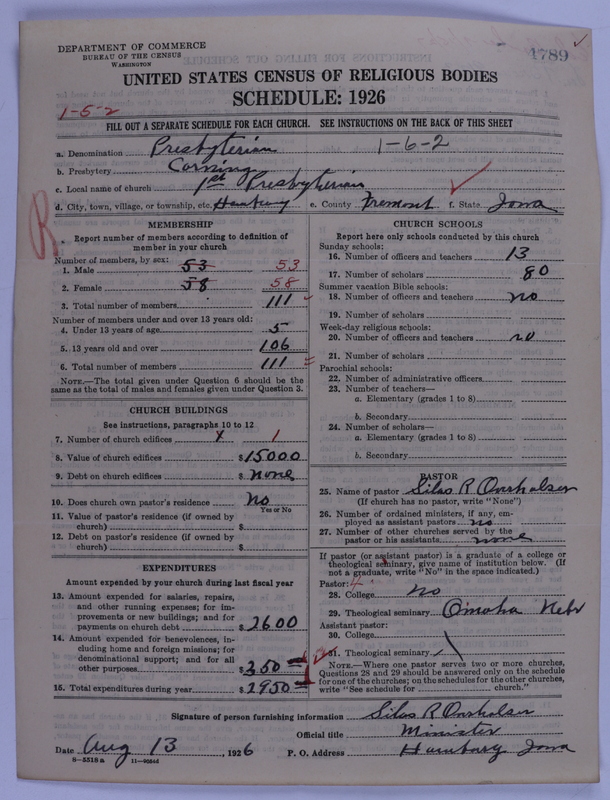 DEPARTMENT OF COMMERCE
BUREAU OF THE CENSUS
WASHINGTON
1789
UNITED STATES CENSUS OF RELIGIOUS BODIES
SCHEDULE: 1926
1-5-2
FILL OUT A SEPARATE SCHEDULE FOR EACH CHURCH. SEE INSTRUCTIONS ON THE BACK OF THIS SHEET
a. Denomination Presbyterian 1-6-2
b. Presbytery Corning
c. Local name of church 1st Presbyterian
d. City, town, village, or township, etc. Hamburg e. County Fremont f. State Iowa
R
MEMBERSHIP
Report number of members according to definition of member in your church
Number of members, by sex:
1. Male 53 53
2. Female 58 58
3. Total number of members 111
Number of members under and over 13 years old:
4. Under 13 years of age 5
5. 13 years old and over 106
6. Total number of members 111
NOTE.—The total given under Question 6 should be the same as the total of males and females given under Question 3.
CHURCH BUILDINGS
See instructions, paragraphs 10 to 12
7. Number of church edifices 1
8. Value of church edifices $15000
9. Debt on church edifices $ none
10. Does church own pastor's residence No
Yes or No
11. Value of pastor's residence (if owned by church) $
12. Debt on pastor's residence (if owned by church) $
EXPENDITURES
Amount expended by your church during last fiscal year
13. Amount expended for salaries, repairs, and other running expenses; for improvements or new buildings; and for payments on church debt $2600
14. Amount expended for benevolences, including home and foreign missions; for denominational support; and for all other purposes $350
15. Total expenditures during year $2950
CHURCH SCHOOLS
Report here only schools conducted by this church
Sunday schools:
16. Number of officers and teachers 13
17. Number of scholars 80
Summer vacation Bible schools:
18. Number of officers and teachers no
19. Number of scholars
Week-day religious schools:
20. Number of officers and teachers no
21. Number of scholars
Parochial schools:
22. Number of administrative officers
23. Number of teachers—
a. Elementary (grades 1 to 8)
b. Secondary
24. Number of scholars—
a. Elementary (grades 1 to 8)
b. Secondary
PASTOR
25. Name of pastor Silas R
(If church has no pastor, write "None")
26. Number of ordained ministers, if any, employed as assistant pastors no
27. Number of other churches served by the pastor or his assistants none
If pastor (or assistant pastor) is a graduate of a college or theological seminary, give name of institution below. (If not a graduate, write "No" in the space indicated.)
Pastor: 4
28. College no
29. Theological seminary Omaha Nebr
Assistant pastor:
30. College
31. Theological seminary
NOTE.—Where one pastor serves two or more churches, Questions 28 and 29 should be answered only on the schedule for one of the churches; on the schedules for the other churches, write "See schedule for church."
Signature of person furnishing information Silas R
Official title Minister
Date Aug 13, 1926 P. O. Address Hamburg Iowa
8—5518 a